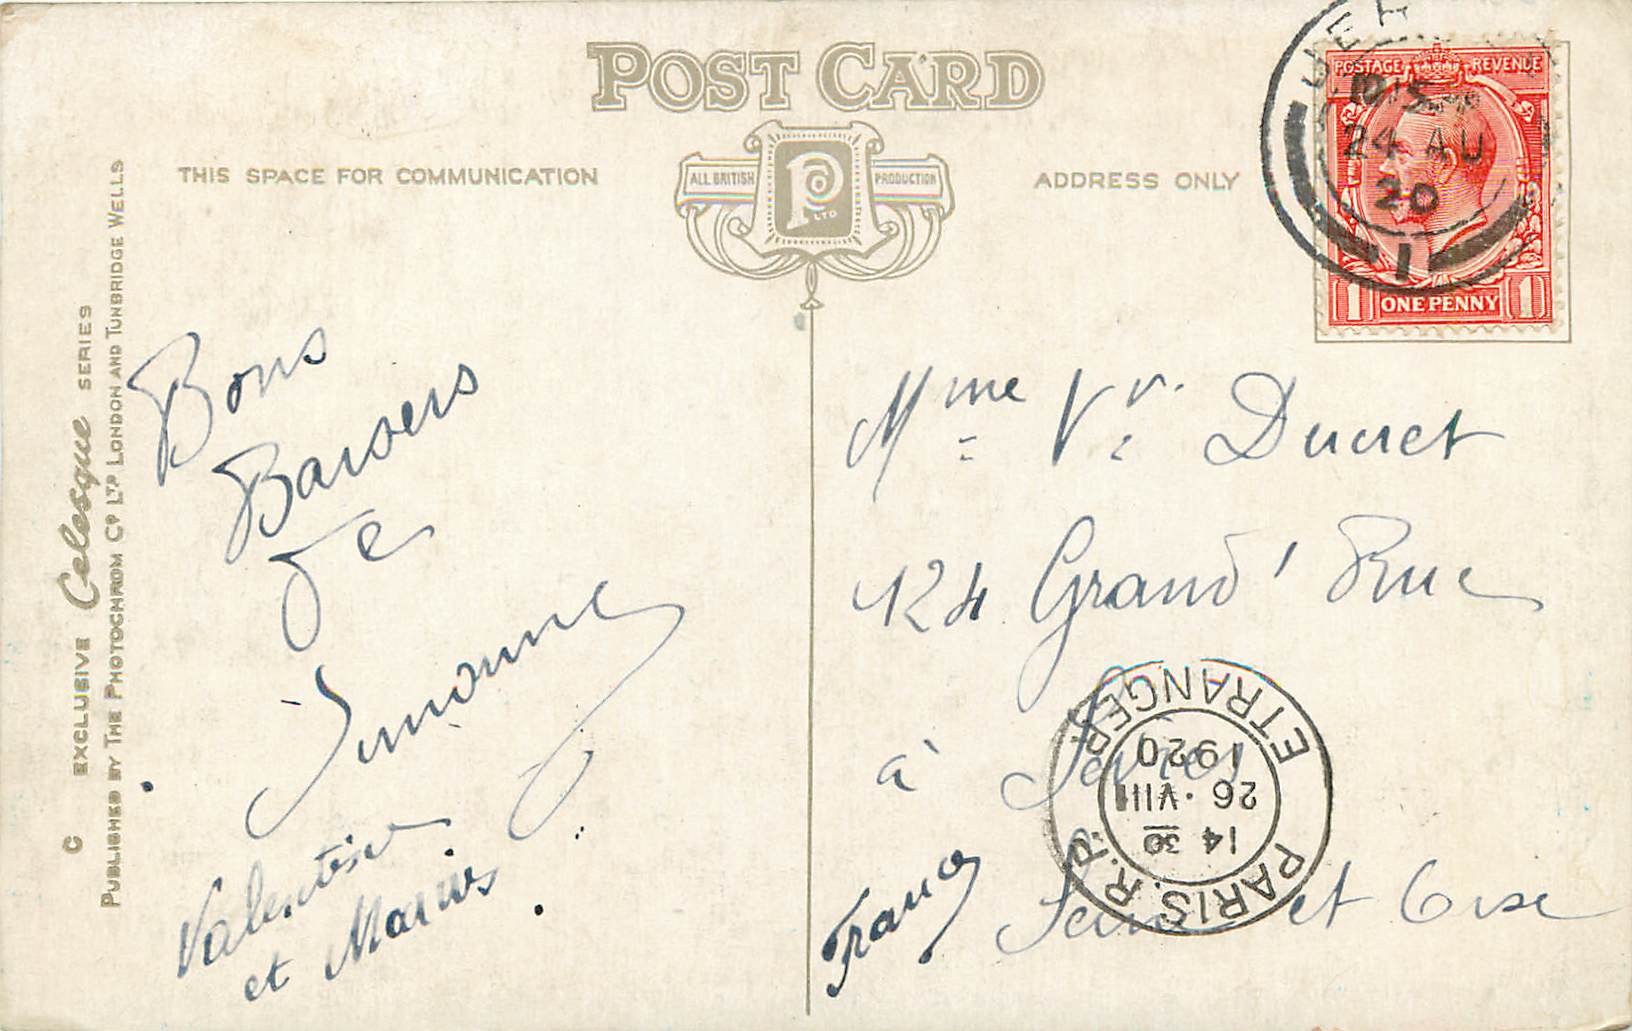 POST CARD
THIS SPACE FOR COMMUNICATION
ALL BRITISH PRODUCTION
P Co LTD
ADDRESS ONLY
POSTAGE REVENUE
1 ONE PENNY 1
24 AU
20
1
C EXCLUSIVE Celesque SERIES
PUBLISHED BY THE PHOTOCHROM Co LTD LONDON AND TUNBRIDGE WELLS
Bons
Baisers
de
Simonne
Valentine
et Marius
Mme Vve Ducret
124 Grand' Rue
à Sèvres
Seine et Oise
France
PARIS R.P. ETRANGER
14 30
26 · VIII
1920